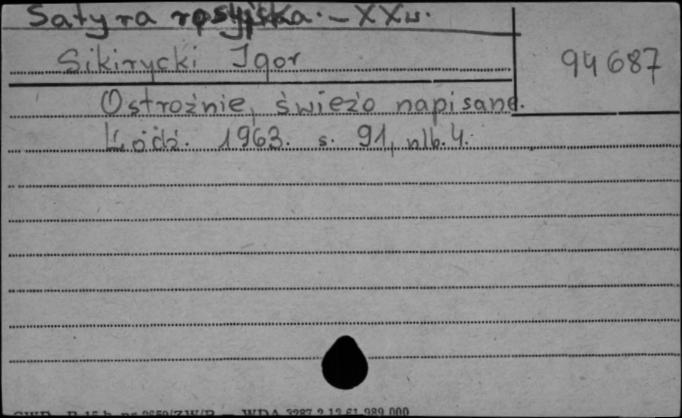 Satyra rosyjska. – XX w.
Sikirycki Igor
94687
Ostrożnie, świeżo napisane.
Łódź. 1963. s. 91, nlb. 4.